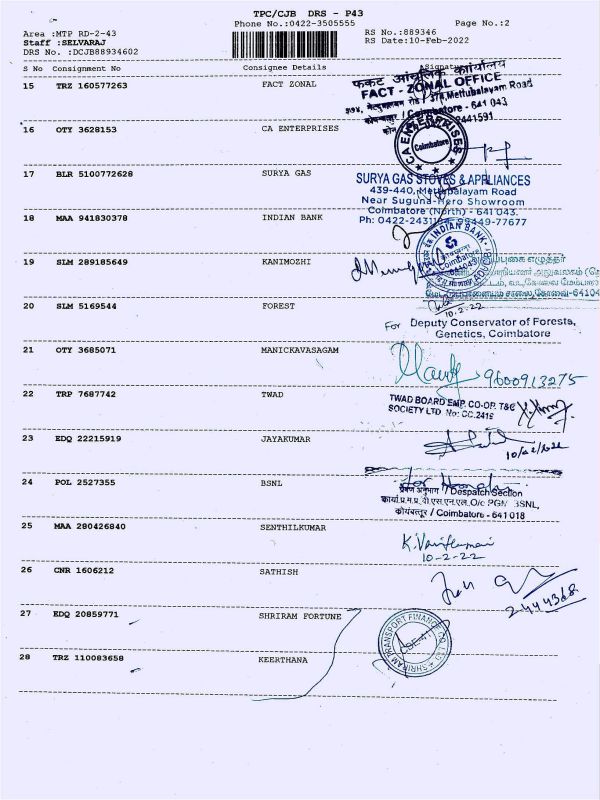 TPC/CJB DRS - P43
Phone No.:0422-3505555
Page No.:2
Area :MTP RD-2-43
RS No.:889346
Staff :SELVARAJ
RS Date:10-Feb-2022
DRS No. :DCJB88934602
S No Consignment No Consignee Details Signature
15 TRZ 160577263 FACT ZONAL
फैक्ट आंचलिक कार्यालय
FACT - ZONAL OFFICE
/ 374, Mettupalayam Road
/ Coimbatore - 641 043
2441591
16 OTY 3628153 CA ENTERPRISES
CA ENTERPRISES
Coimbatore
17 BLR 5100772628 SURYA GAS
SURYA GAS STOVES & APPLIANCES
439-440, Mettupalayam Road
Near Suguna Hero Showroom
Coimbatore (North) - 641 043.
18 MAA 941830378 INDIAN BANK
INDIAN BANK
Coimbatore
641043
19 SLM 289185649 KANIMOZHI
20 SLM 5169544 FOREST
10-2-22
For Deputy Conservator of Forests,
Genetics, Coimbatore
21 OTY 3685071 MANICKAVASAGAM
9600913275
22 TRP 7687742 TWAD
TWAD BOARD EMP. CO-OP. T&C
SOCIETY LTD. No: CC.2416
23 EDQ 22215919 JAYAKUMAR
10/02/2022
24 POL 2527355 BSNL
प्रेषण अनुभाग / Despatch Section
कोयंबत्तूर / Coimbatore - 641 018
25 MAA 280426840 SENTHILKUMAR
10-2-22
26 CNR 1606212 SATHISH
2444368
27 EDQ 20859771 SHRIRAM FORTUNE
SHRIRAM TRANSPORT FINANCE CO LTD
28 TRZ 110083658 KEERTHANA